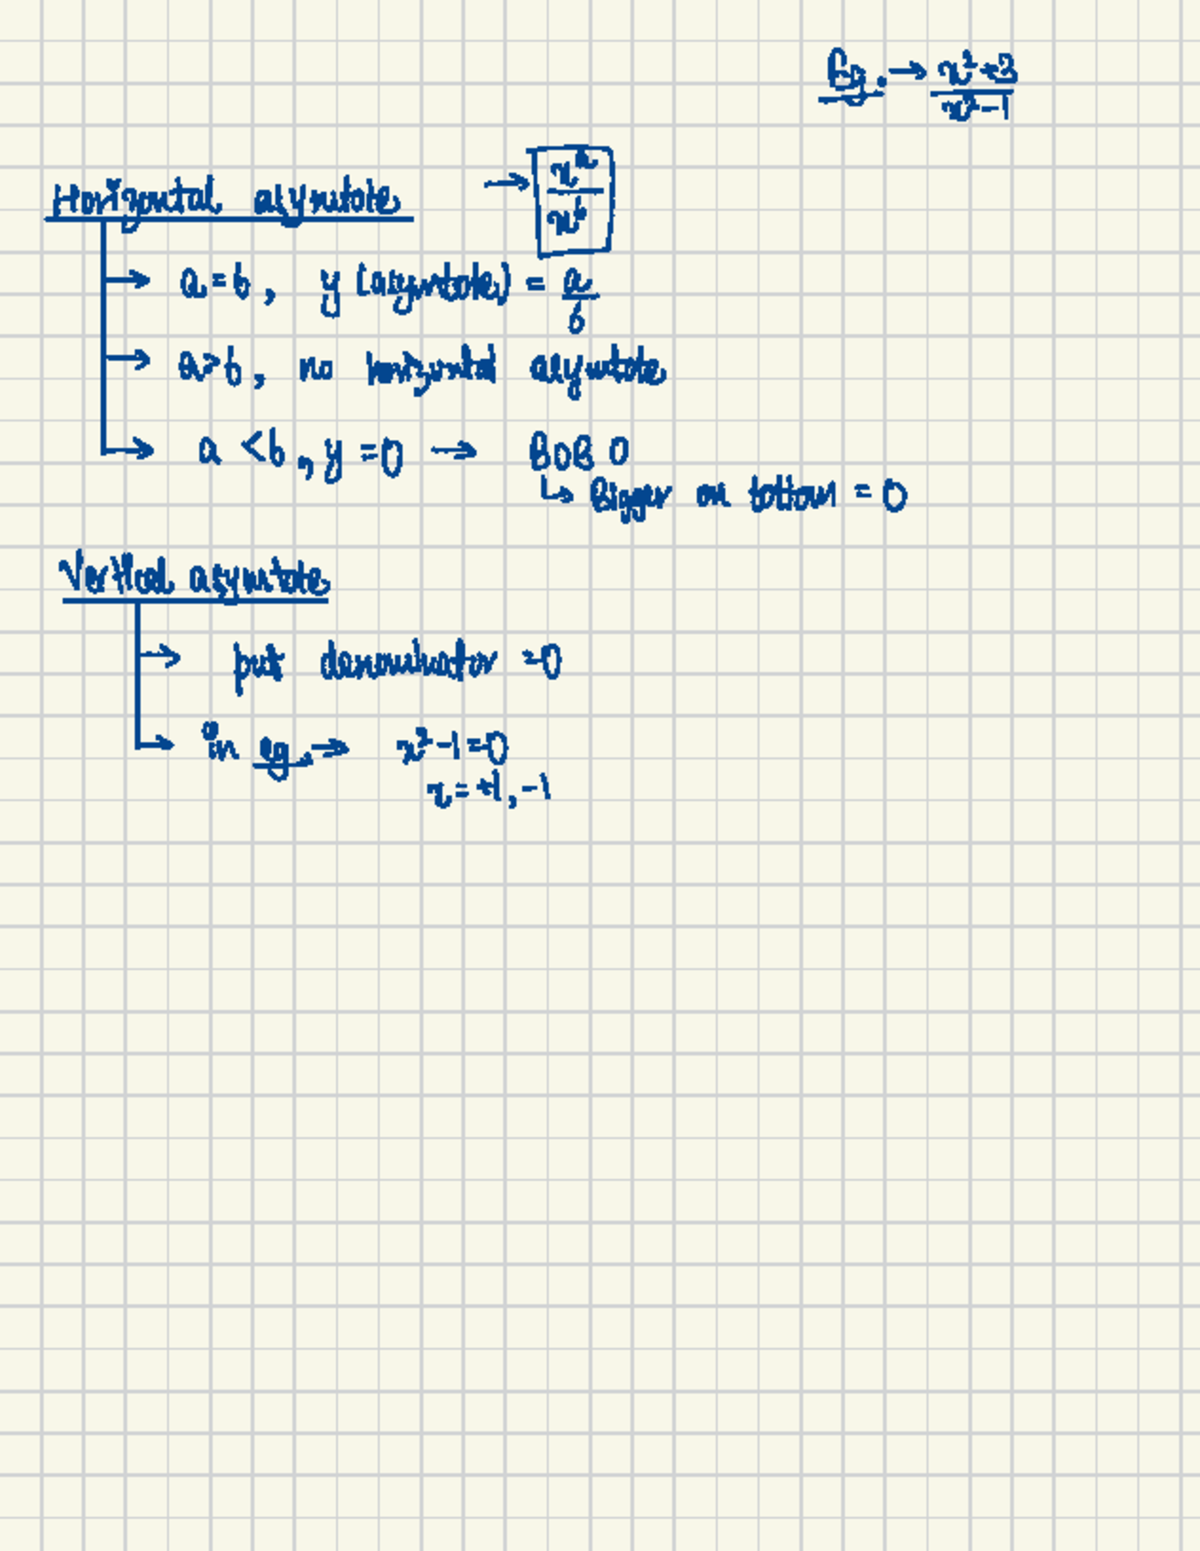 Eg. → x²+3
x²-1
Horizontal asymtote → x^a
x^b
→ a=b, y (asymtote) = a
b
→ a>b, no horizontal asymtote
→ a <b, y =0 → BOB 0
↳ Bigger on bottom = 0
Vertical asymtote
→ put denominator =0
→ in eg. → x²-1=0
x=+1,-1